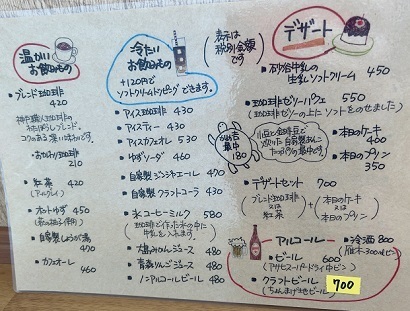 温かい
お飲みもの
・ブレンド珈琲
420
神戸職人珈琲の
コクのある深い味わいです。
・おかわり珈琲
210
・紅茶 420
(アールグレイ)
・ホットゆず 450
(柚子使用)
・自家製しょうが湯
470
・カフェオーレ
460
冷たい
お飲みもの
+120円で
ソフトクリームトッピングできます。
・アイス珈琲 430
・アイスティー 430
・アイスカフェオレ 530
・ゆずソーダ 460
・自家製ジンジャエール 470
・自家製クラフトコーラ 530
・氷コーヒーミルク 580
(珈琲で作った氷の中に
牛乳を入れます。)
・大島みかんジュース 480
・青森りんごジュース 480
・ノンアルコールビール 480
表示は
税別金額
です
デザート
・砂谷牛乳の
生乳ソフトクリーム 450
・珈琲ゼリーパフェ 550
(珈琲ゼリーの上にソフトをのせました)
最中
180
小豆と
炊いた自家製あんこ
最中です。
・本日のケーキ
400
・本日のプリン
350
・デザートセット 700
ブレンド珈琲
又は
紅茶
+
本日のケーキ
又は
本日のプリン
アルコール
・ビール 600
(アサヒスーパードライ中ビン)
・クラフトビール 700
・冷酒 800
(雁木300mlビン)